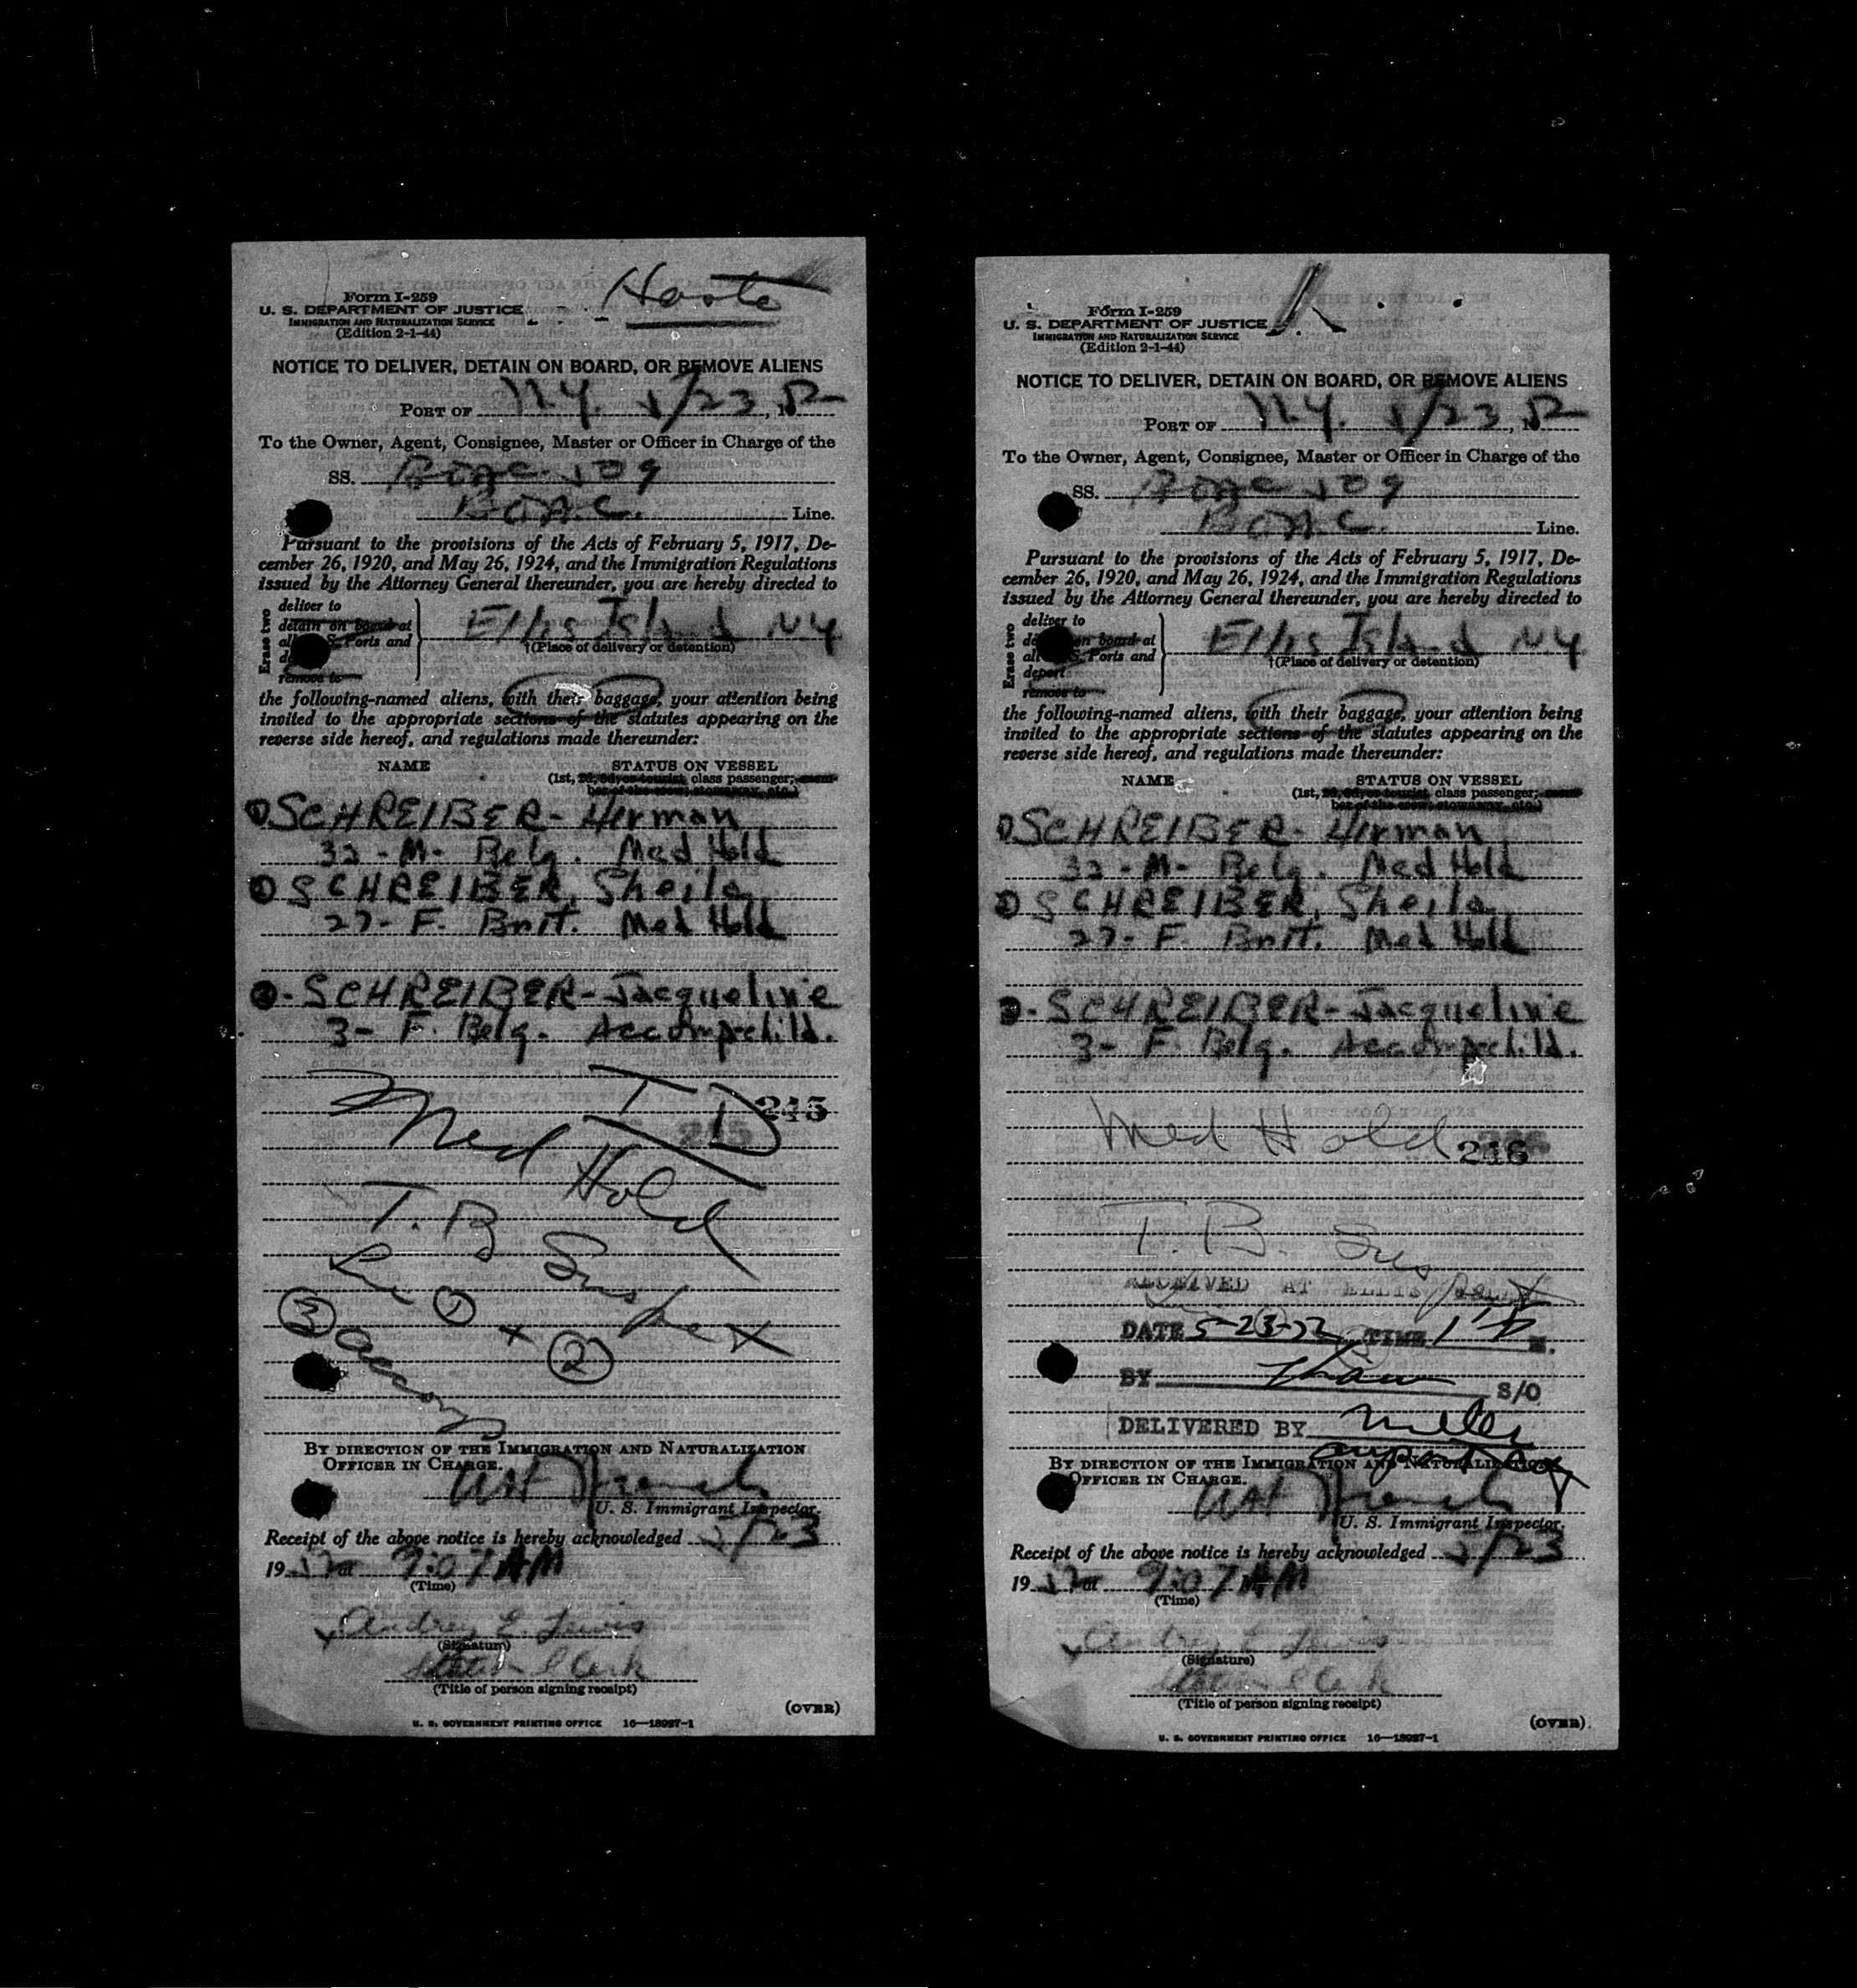 Form I-259
U. S. DEPARTMENT OF JUSTICE
IMMIGRATION AND NATURALIZATION SERVICE
(Edition 2-1-44)
NOTICE TO DELIVER, DETAIN ON BOARD, OR REMOVE ALIENS
PORT OF N.Y. 5/23, 52
To the Owner, Agent, Consignee, Master or Officer in Charge of the
SS. BOAC 509
B.O.A.C. Line.
Pursuant to the provisions of the Acts of February 5, 1917, De-
cember 26, 1920, and May 26, 1924, and the Immigration Regulations
issued by the Attorney General thereunder, you are hereby directed to
Erase two
deliver to
detain on board at
Ports and
remove to
Ellis Island NY
†(Place of delivery or detention)
the following-named aliens, with their baggage, your attention being
invited to the appropriate sections of the statutes appearing on the
reverse side hereof, and regulations made thereunder:
NAME STATUS ON VESSEL
(1st, class passenger;
① SCHREIBER - Herman
32 - M - Belg. Med Hold
② SCHREIBER, Sheila
27 - F. Brit. Med Hold
③ - SCHREIBER - Jacqueline
3 - F. Belg. Accomp child.
245
Med Hold
T.B Suspect
① + ②
③ accomp
BY DIRECTION OF THE IMMIGRATION AND NATURALIZATION
OFFICER IN CHARGE.
U. S. Immigrant Inspector.
Receipt of the above notice is hereby acknowledged 5/23
19 52 at 9:07 AM
(Time)
Audrey E. Lewis
(Signature)
Station Clerk
(Title of person signing receipt)
(OVER)
U. S. GOVERNMENT PRINTING OFFICE 16—18027-1
Form I-259
U. S. DEPARTMENT OF JUSTICE
IMMIGRATION AND NATURALIZATION SERVICE
(Edition 2-1-44)
NOTICE TO DELIVER, DETAIN ON BOARD, OR REMOVE ALIENS
PORT OF N.Y. 5/23, 52
To the Owner, Agent, Consignee, Master or Officer in Charge of the
SS. BOAC 509
B.O.A.C. Line.
Pursuant to the provisions of the Acts of February 5, 1917, De-
cember 26, 1920, and May 26, 1924, and the Immigration Regulations
issued by the Attorney General thereunder, you are hereby directed to
Erase two
deliver to
on board at
Ports and
deport
remove to
Ellis Island NY
†(Place of delivery or detention)
the following-named aliens, with their baggage, your attention being
invited to the appropriate sections of the statutes appearing on the
reverse side hereof, and regulations made thereunder:
NAME STATUS ON VESSEL
(1st, class passenger;
① SCHREIBER - Herman
32 - M - Belg. Med Hold
② SCHREIBER, Sheila
27 - F Brit. Med Hold
③ - SCHREIBER - Jacqueline
3 - F Belg. Accomp child.
Med Hold 246
T.B. Suspect
RECEIVED AT ELLIS ISLAND
DATE 5-23-52 TIME M.
BY S/O
DELIVERED BY Miller
BY DIRECTION OF THE IMMIGRATION AND NATURALIZATION
OFFICER IN CHARGE.
U. S. Immigrant Inspector.
Receipt of the above notice is hereby acknowledged 5/23
19 52 at 9:07 AM
(Time)
Audrey E Lewis
(Signature)
Station Clerk
(Title of person signing receipt)
(OVER)
U. S. GOVERNMENT PRINTING OFFICE 16—18027-1